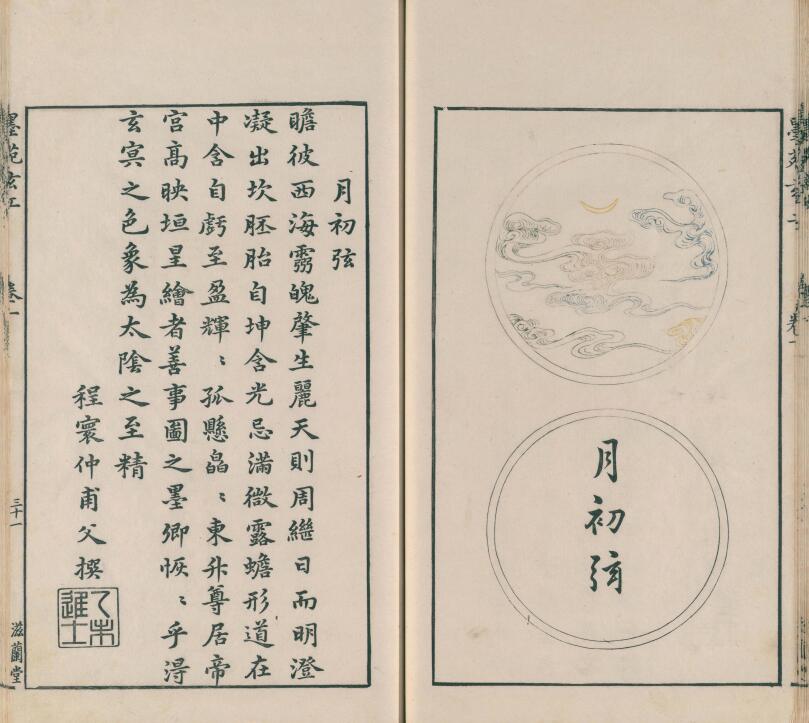 月初弦
月初弦
瞻彼西海霛魄肇生麗天則周繼日而明澄
凝出坎胚胎自坤含光忌滿微露蟾形道在
中含自虧至盈輝〻孤懸皛〻東升尊居帝
宮高映垣星繪者善事圖之墨卿恢〻乎淂
玄冥之色象為太陰之至精
程寰仲甫父撰
乙未進士
墨苑玄工 卷一 三十一 滋蘭堂